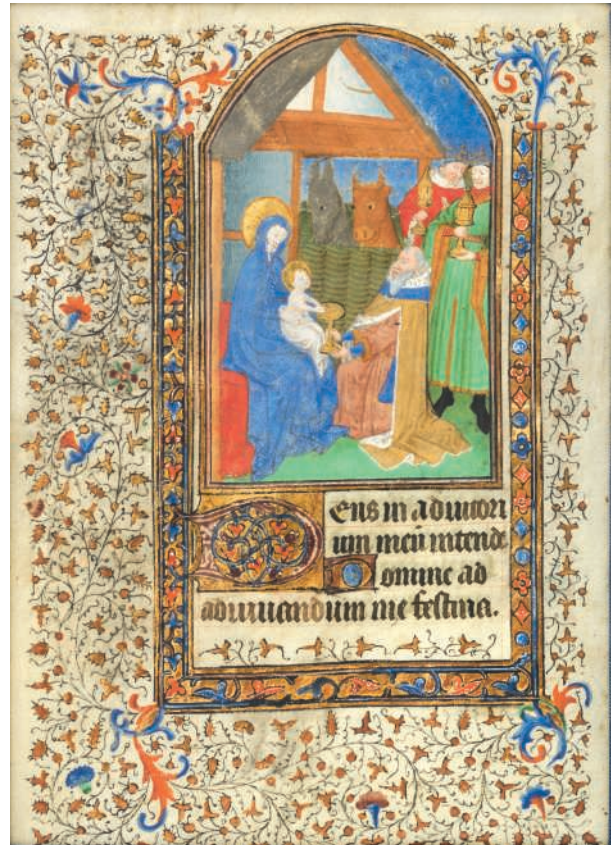 Deus in adiutori
um meū intende
Domine ad
adiuuandum me festina.